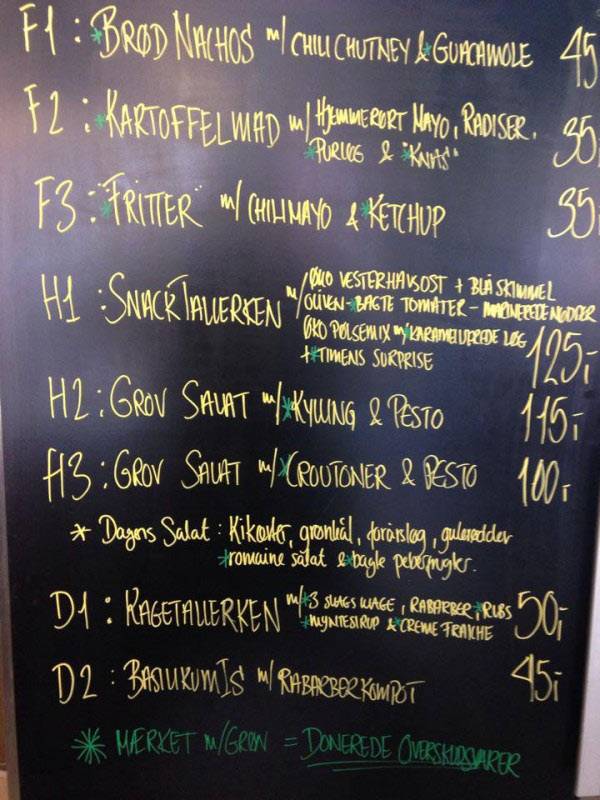 F1: *BRØD NACHOS m/ CHILI CHUTNEY & *GUACAMOLE 45
F2: *KARTOFFELMAD m/ HJEMMERØRT MAYO, RADISER,
*PURLØG & *"KNAS" 35
F3: *"FRITTER" m/ CHILIMAYO & *KETCHUP 35
H1: SNACKTALLERKEN m/ ØKO VESTERHAVSOST + BLÅSKIMMEL
OLIVEN - *BAGTE TOMATER - MARINEREDE NØDDER
ØKO PØLSEMIX m/ *KARAMELLISEREDE LØG
+ *TIMENS SURPRISE 125,-
H2: GROV SALAT m/ *KYLLING & PESTO 115,-
H3: GROV SALAT m/ *CROUTONER & PESTO 100,-
* Dagens Salat: Kikærter, grønkål, forårsløg, gulerødder
*romaine salat & *bagte peberfrugter.
D1: KAGETALLERKEN m/ *3 SLAGS KAGE, RABARBER, *RIBS
*MYNTESIRUP & *CREME FRAICHE 50,-
D2: BASILIKUM IS m/ RABARBERKOMPOT 45,-
* MÆRKET m/ GRØN = DONEREDE OVERSKUDSVARER